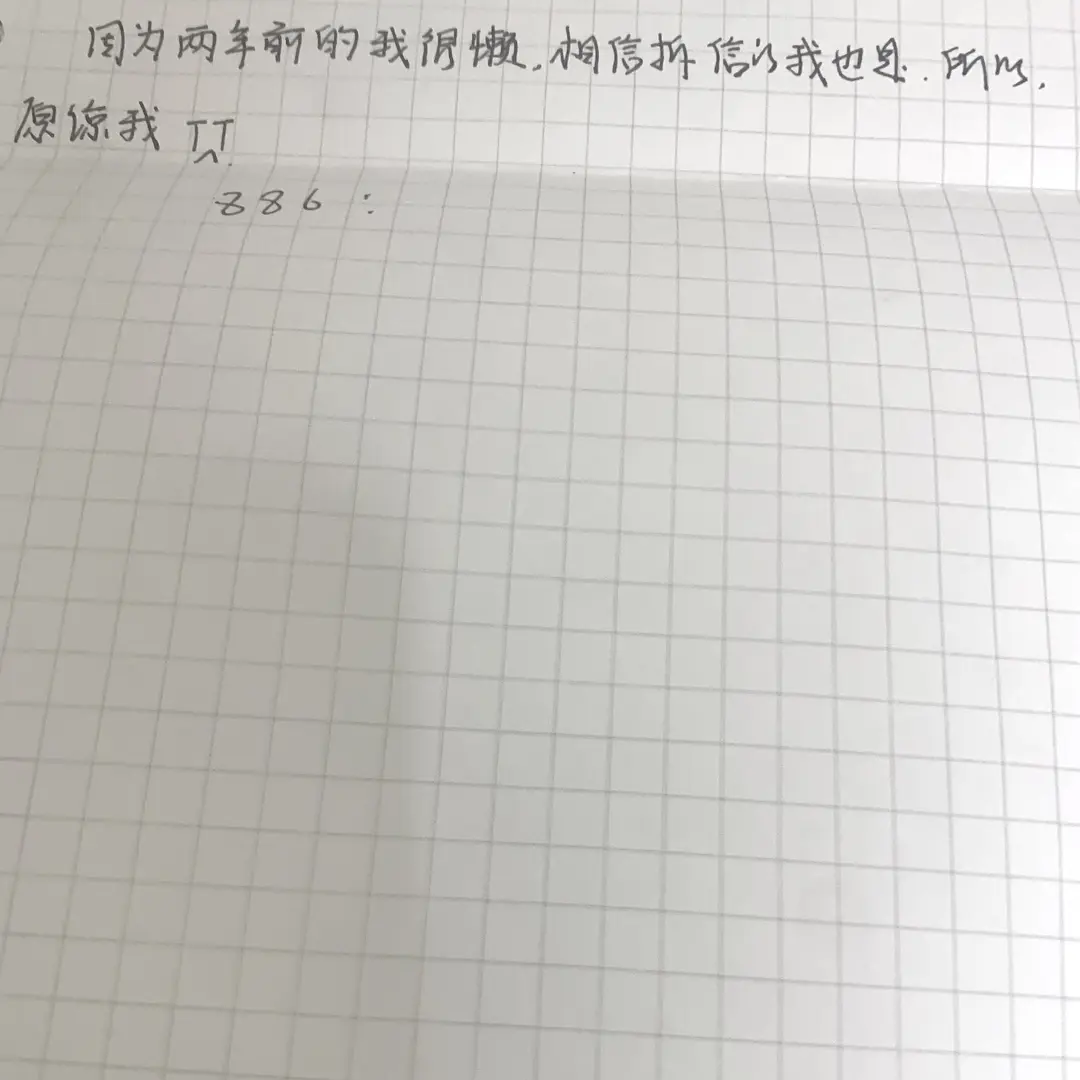 因为两年前的我很懒,相信拆信的我也是.所以,
原谅我 TT
886: